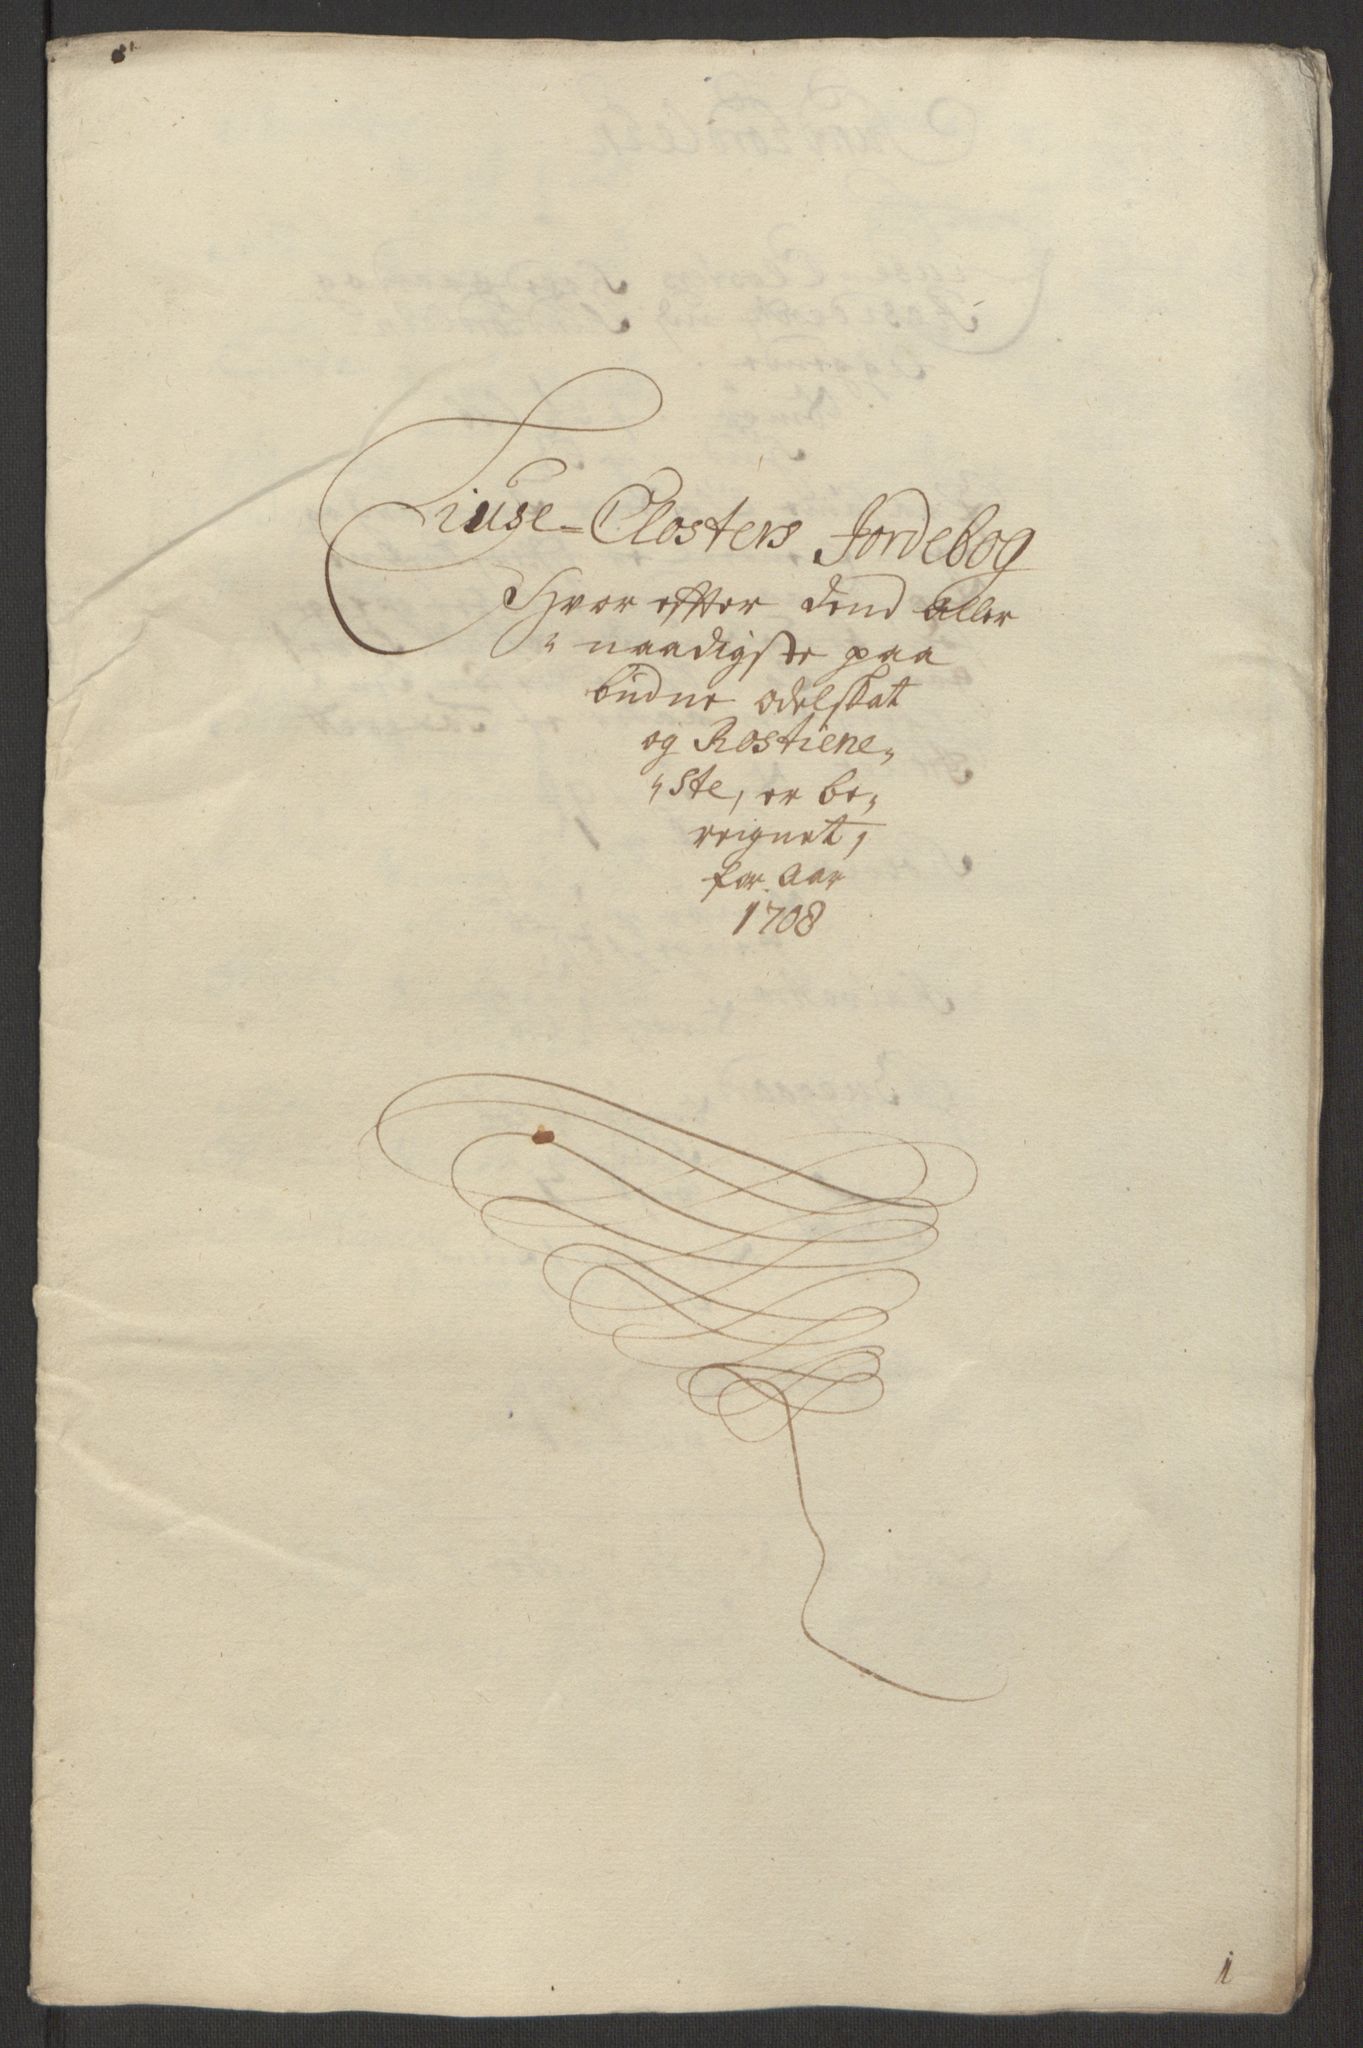 Liuse-Closters Jordebog
Hvor effter dend aller
" naadigste paa
budne odelskat
og Rostiene„
"ste, er be„
reignet,
for Aar
1708
1